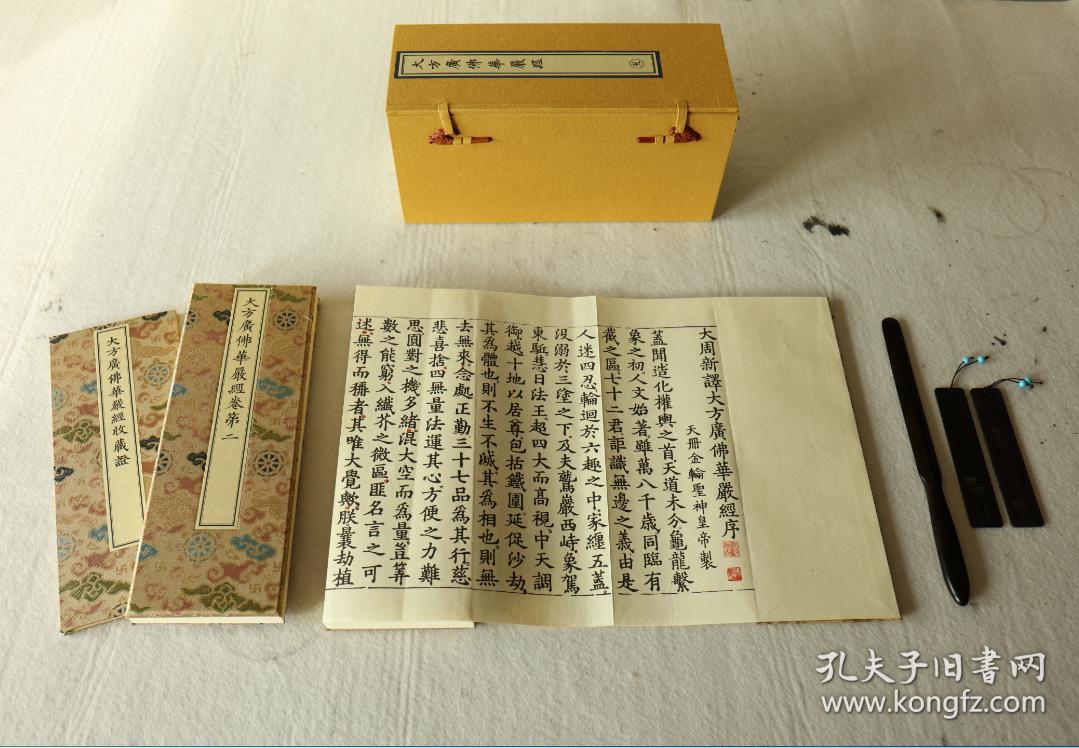 大方廣佛華嚴經 天
大方廣佛華嚴經收藏證
大方廣佛華嚴經卷第二
大周新譯大方廣佛華嚴經序
天冊金輪聖神皇帝製
蓋聞造化權輿之首天道未分龜龍繫
象之初人文始著雖萬八千歲同臨有
截之區七十二君詎識無邊之義由是
人迷四忍輪迴於六趣之中家纏五蓋
沒溺於三塗之下及夫鷲巖西峙象駕
東驅慧日法王超四大而高視中天調
御越十地以居尊包括鐵圍延促沙劫
其為體也則不生不滅其為相也則無
去無來念處正勤三十七品為其行慈
悲喜捨四無量法運其心方便之力難
思圓對之機多緒混大空而為量豈筭
數之能窮入纖芥之微區匪名言之可
述無得而稱者其唯大覺歟朕曩劫植
孔夫子旧书网
www.kongfz.com